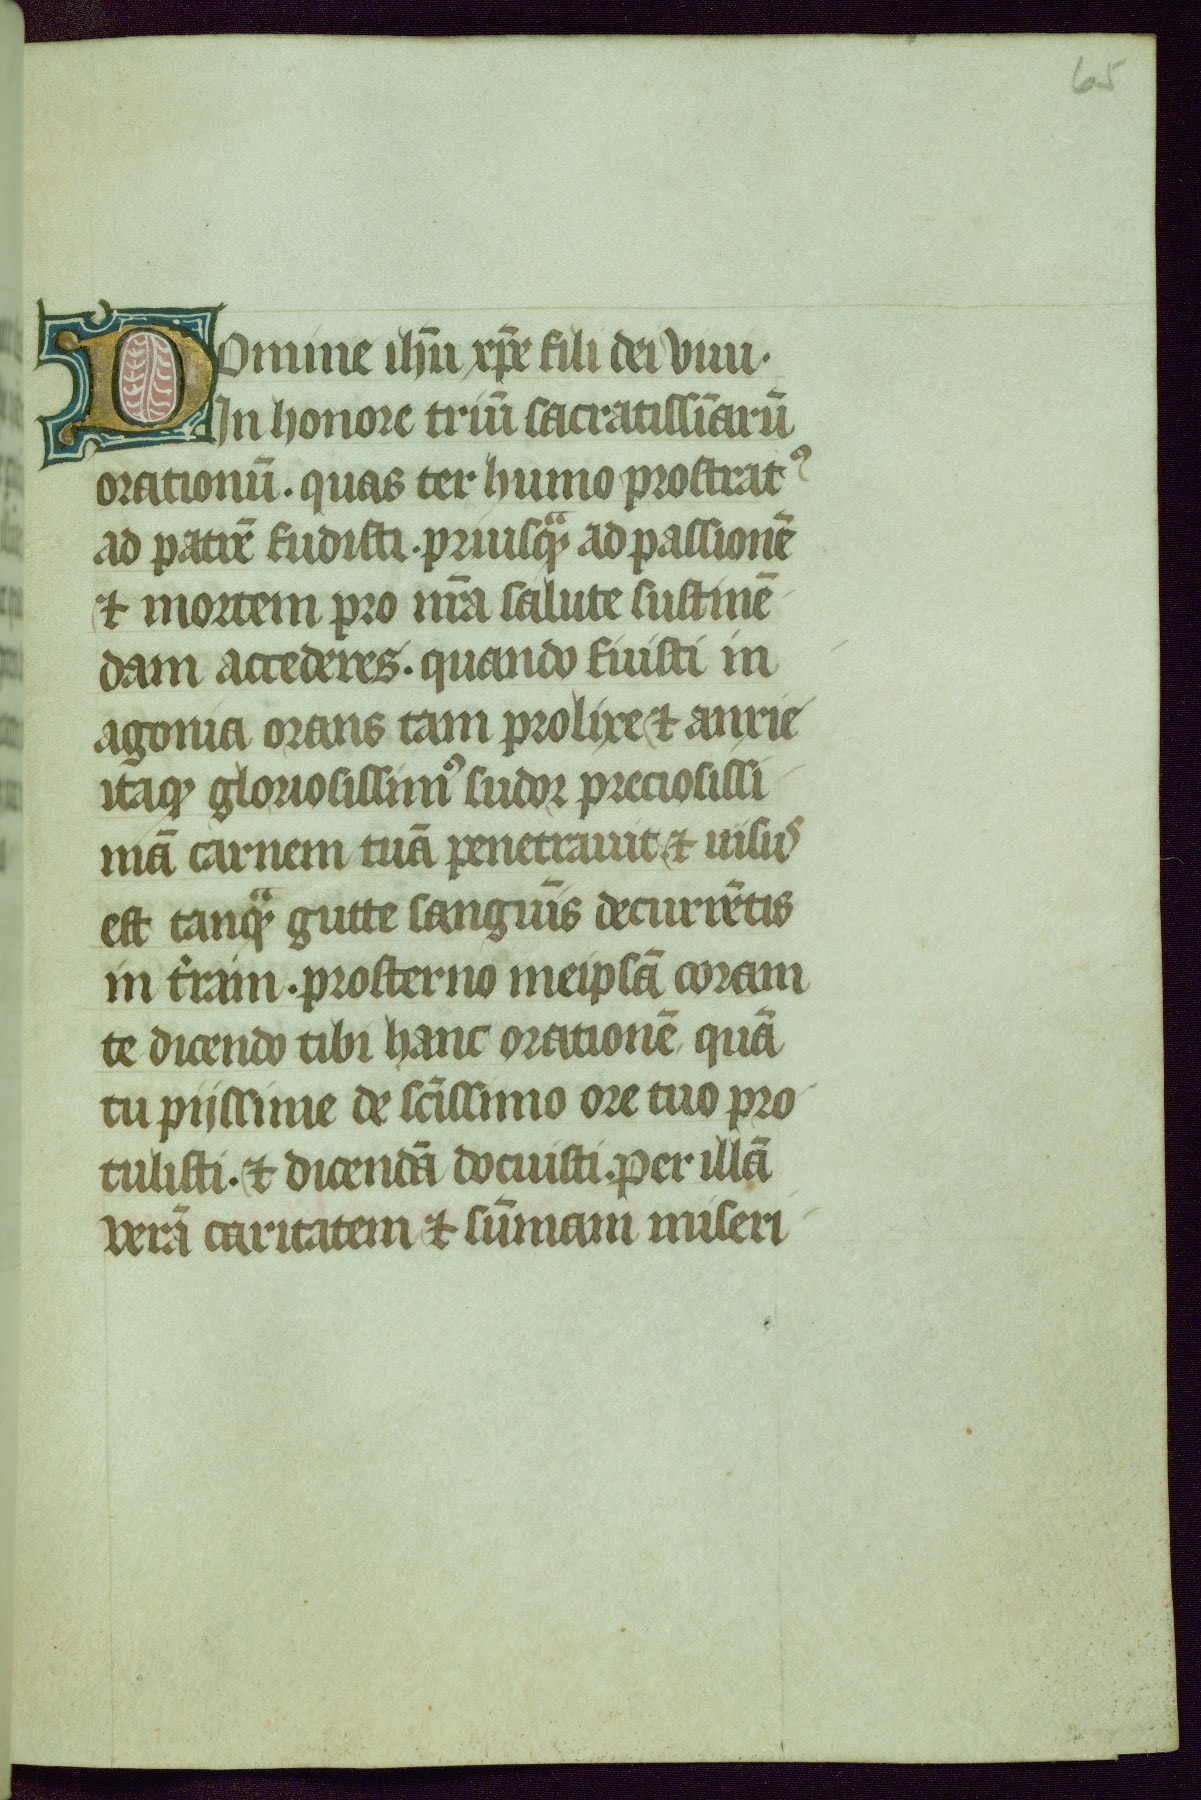 65
Domine ih̄u xp̄e fili dei viui.
In honore triū sacratissīarū
orationū. quas ter humo prostratꝰ
ad patrē fudisti. priusqͣ ad passionē
⁊ mortem pro nr̄a salute sustinē
dam accederes. quando fuisti in
agonia orans tam prolixe ⁊ anxie
itaqꝫ gloriosissimꝰ sudor preciosissi
mā carnem tuā penetrauit ⁊ uisus
est tanqͣ gutte sanguīs decurrētis
in t̄ram. prosterno meipsā coram
te dicendo tibi hanc orationē quā
tu pijssime de sc̄issimo ore tuo pro
tulisti. ⁊ dicendā docuisti. per illā
verā caritatem ⁊ sūmam miseri